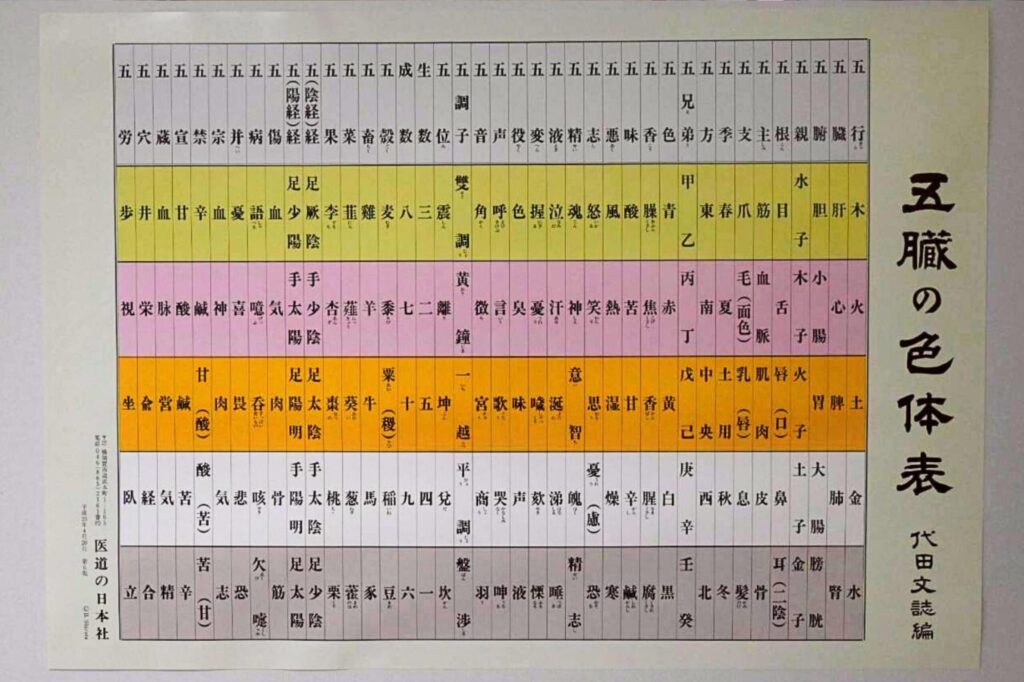 五臓の色体表
代田文誌編
五行 木 火 土 金 水
五臓 肝 心 脾 肺 腎
五腑 胆 小腸 胃 大腸 膀胱
五親 水子 木子 火子 土子 金子
五根 目 舌 唇(口) 鼻 耳(二陰)
五主 筋 血脈 肌肉 皮 骨
五支 爪 毛(面色) 乳(唇) 息 髪
五季 春 夏 土用 秋 冬
五方 東 南 中央 西 北
五兄弟 甲乙 丙丁 戊己 庚辛 壬癸
五色 青 赤 黄 白 黒
五香 臊 焦 香 腥 腐
五味 酸 苦 甘 辛 鹹
五悪 風 熱 湿 燥 寒
五志 怒 笑 思 憂(慮) 恐
五精 魂 神 意智 魄 精志
五液 泣 汗 涎 涕 唾
五変 握 憂 噦 欬 慄
五役 色 臭 味 声 液
五声 呼 言 歌 哭 呻
五音 角 徴 宮 商 羽
五調子 雙調 黄鐘 一越 平調 盤渉
五位 震 離 坤 兌 坎
生数 三 二 五 四 一
成数 八 七 十 九 六
五穀 麦 黍 粟(稷) 稲 豆
五畜 雞 羊 牛 馬 豕
五菜 韮 薤 葵 葱 藿
五果 李 杏 棗 桃 栗
五(陰経)経 足厥陰 手少陰 足太陰 手太陰 足少陰
五(陽経)経 足少陽 手太陽 足陽明 手陽明 足太陽
五傷 血 気 肉 骨 筋
五病 語 噫 呑 咳 欠嚔
五并 憂 喜 畏 悲 恐
五宗 血 神 肉 気 志
五禁 辛 鹹 甘(酸) 酸(苦) 苦(甘)
五宣 甘 酸 鹹 苦 辛
五蔵 血 脈 営 気 精
五穴 井 栄 兪 経 合
五労 歩 視 坐 臥 立
医道の日本社